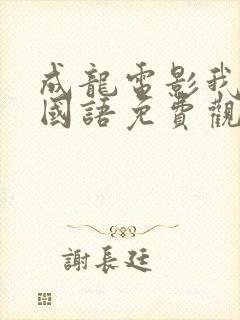 成龍電影我
國語免費觀
謝長廷